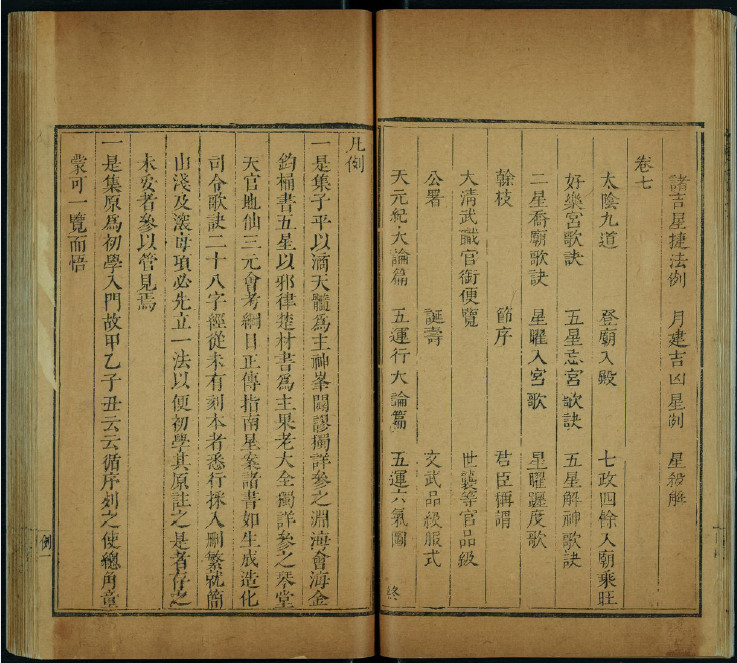 諸吉星捷法例　月建吉凶星例　星級解
卷七
太陰九道　登廟入殿　七政四餘入廟乘旺
好樂宮歌訣　五星忌宮歌訣　五星解神歌訣
二星喬廟歌訣　星曜入宮歌　星曜躔度歌
幹枝　節序　君臣稱謂
大清武職官銜便覽　世襲等官品級
公署　誕壽　文武品級服式
天元紀大論篇　五運行大論篇　五運六氣圖　終
凡例
一是集子平以滴天髓為主神峯闢謬獨詳參之淵海會海金
鈞桶書五星以耶律楚材書為主果老大全獨詳參之琴堂
天官地仙三元會考綱目正傳指南星案諸書如生成造化
司令歌訣二十八字經從未有刻本者悉行採入刪繁就簡
由淺及深每項必先立一法以便初學其原註之是者存之
未妥者參以管見焉
一是集原為初學入門故甲乙子丑云云循序列之使總角童
蒙可一覽而悟
例一